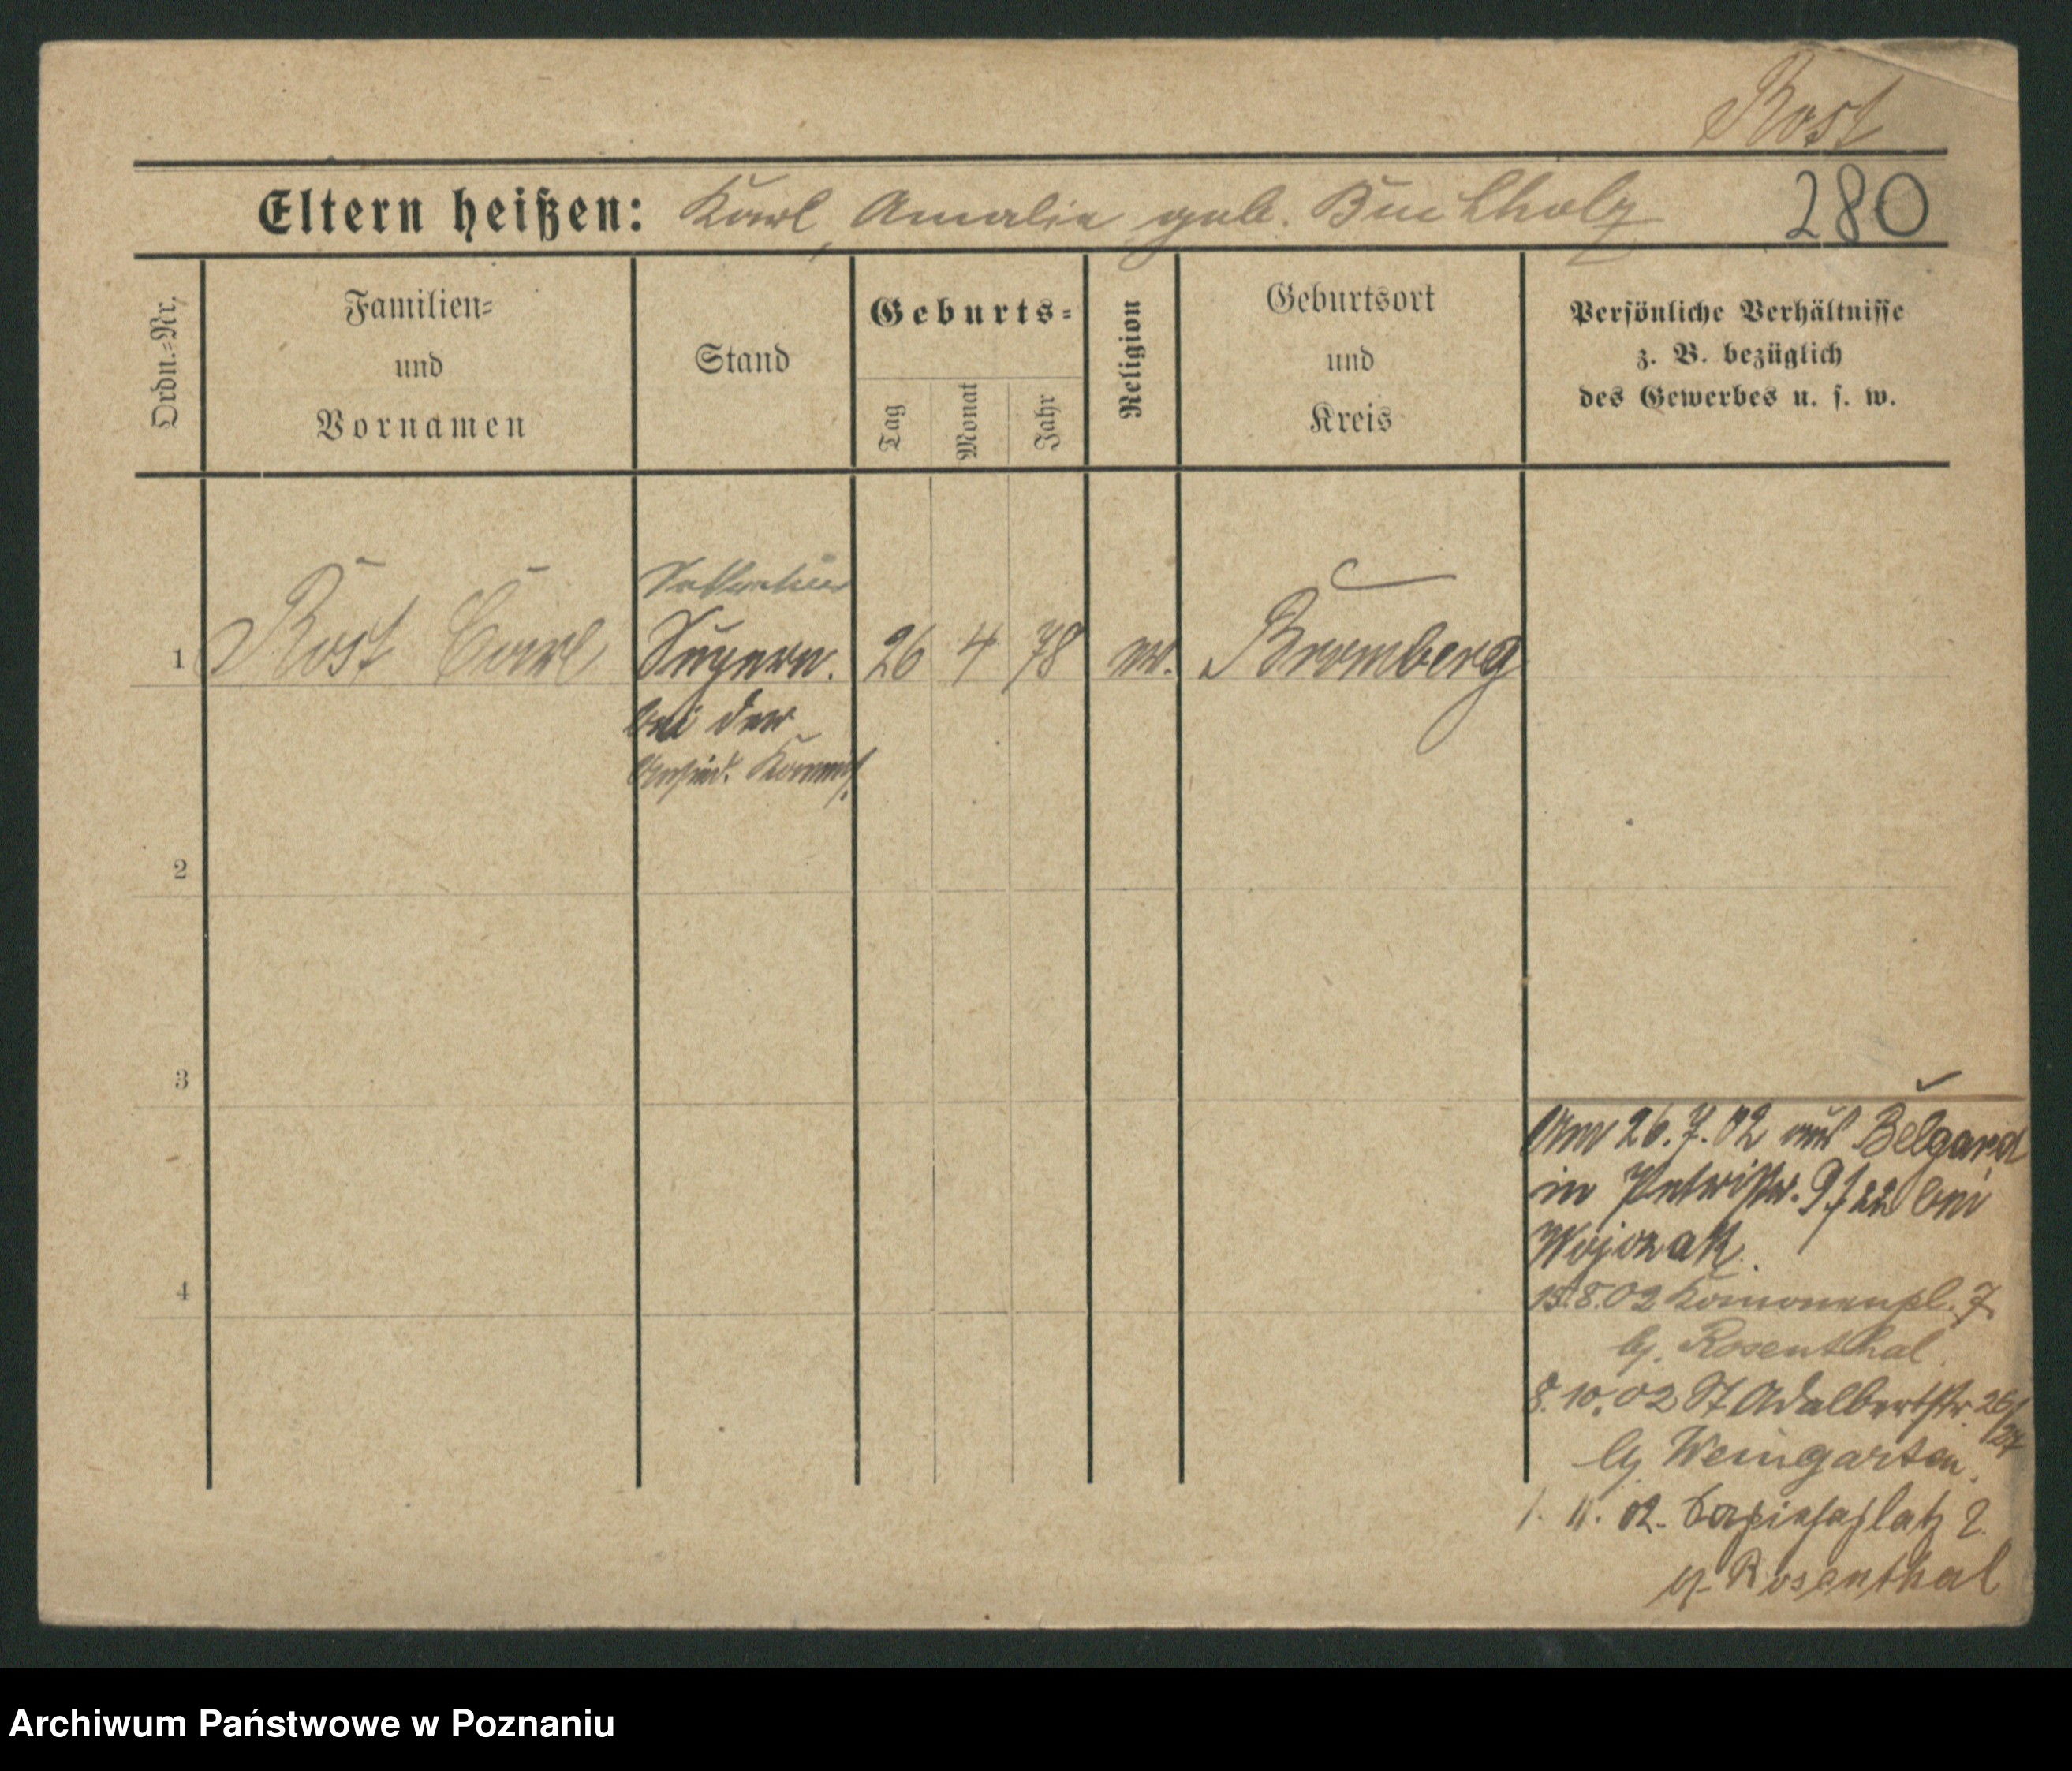 Rost
Eltern heißen: Karl, Amalie geb. Buchholz 280
Ordn.-Nr.
Familien-
und
Vornamen
Stand
Geburts-
Tag
Monat
Jahr
Religion
Geburtsort
und
Kreis
Persönliche Verhältnisse
z. B. bezüglich
des Gewerbes u. s. w.
1 Rost Carl
Supern.
bei der
Ansied. Kommiss.
26 4 78 ev. Bromberg
2
3
4
Am 26.7.02 aus Belgard
in Petristr. 9 bei
Wojczak.
15.8.02 Kanonenpl. 7
bj. Rosenthal
8.10.02 St Adalbertstr. 26/27
bj Weingarten.
1. 11. 02. Sapiehaplatz 2.
bj. Rosenthal
Archiwum Państwowe w Poznaniu